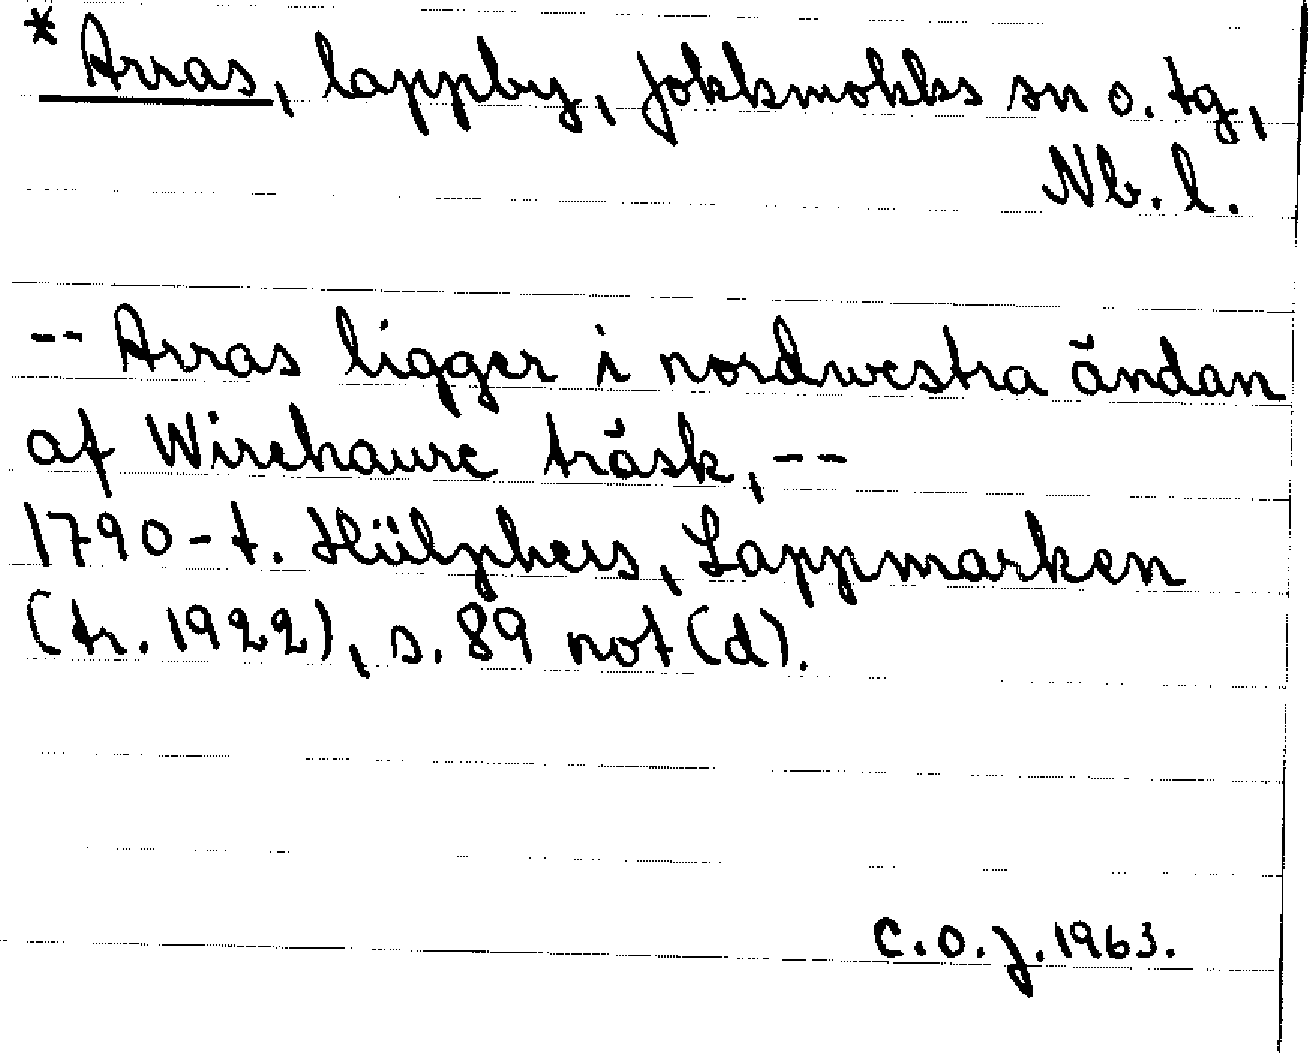 * Arras, lappby, Jokkmokks sn o. tg,
Nb. l.
-- Arras ligger i nordwestra ändan
af Wirehaure träsk, --
1790-t. Hülphers, Lappmarken
(tr. 1922), s. 89 not (d).
C.O.J. 1963.